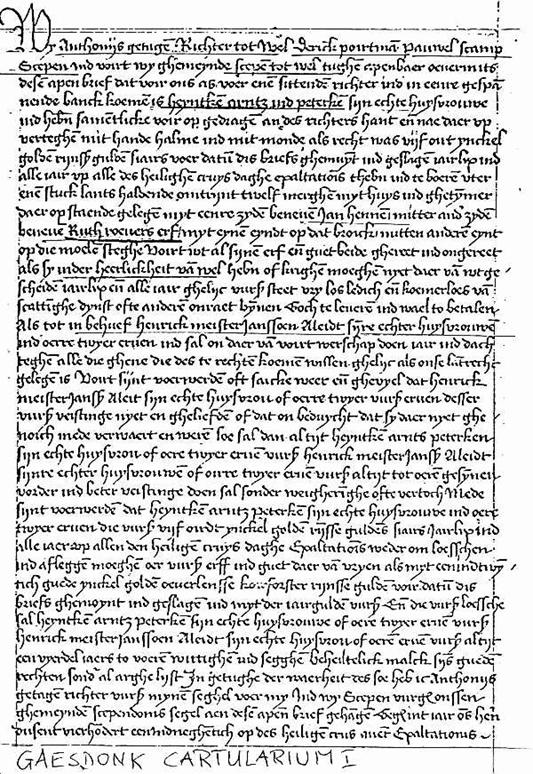 Wy Anthoniis getige Richter tot Wel Derick poirtman Pauwel scamp
Scepen ind voirt wy ghemeynde scepen tot wel tughe apenbaer oevermits
desen apen brief dat voir ons as voer enen sittenden richter ind in eenre gespan
nende banck koemen is heyntken arntz ind peterken sijn echte huysvrouwe
ind hebn samentlicke voir op gedragen an des richters hant en nae daer op
verteghen mit hande halme ind mit monde als recht was vijf out ynckel
golden rijnss gulden siairs voer datum dis briefs ghemunt ind geslagen iairlix ind
alle iair vp alle des heilighen cruys daghe exaltationis thebn ind te boeren uter
enen stuck lants haldende omtrint twelf merghen myt huys ind ghetymer
daer op staende gelegen myt eenre zyden beneuen Jan hennen mitter and zyde
beneuen Ruth voeuers erf myt eynen eynde op dat broick mitten anderen eynt
op die moelesteghe Voirt wt al sijnen erf en guet beide ghereet ind ongereet
als sy inder heerlickheit van wel hebn of krighe moeghen nyet daer van wtge
scheide iairlix en alle iair ghelijc vurs steet vry los ledich en koemerloes van
scattinghe dynst ofte anderen onraet bynnen Goch te leueren ind wael to betalen
Als tot in behuef henrick meisterjanssoen Aleidt sijnre echter huysvrouwen
ind oerre twyer eruen ind sal on daer van voirt werschap doen iair ind dach
teghen alle die ghene die des te rechte koemen willen ghelijc als onse lantrecht
gelegen is Voirt sijnt voerwerden oft saicke weer en gheuyel dat henrick
meisterjanss Aleit sijn echte huysvrou of oerre twyer vurs eruen desser
vurs veistinge nyet en ghelieften of dat on beduycht dat sy daer nyet ghe
noich mede verwaert en weren soe sal dan altijt heyntken arnts peterken
sijn echte huysvrou of oere twyer eruen vurs henrick meisterjanss Aleidt
sijnre echter huysvrouwen of oirre twyer eruen vurs altijt tot oeren gesynnen
vorder ind beter veistinge doen sal sonder weigheringhe ofte vertoch Mede
sijnt voerwerde dat heyntken arntz peterken sijn echte huysvrouwe ind oere
twyer eruen die vurs vijf oirdt ynckel golden rijnsse guldens siairs iairlix ind
alle iaer vp allen den heiligen cruys daghe Exaltationis weder om loesschen
ind afleggen moeghen oer vurs erff ind guet daer van vryen als myt eenindtwyn
tich guede ynckel golden oeuerlensse koerforster rijnsse gulden voir datum dis
briefs ghemoynt ind geslagen ind myt der iairgulden vurs En die vurs loessche
sal heyntken arntz peterken sijn echte huysvrouwe of oere twyer eruen vurs
henrick meisterjanssoen Aleidt sijn echte huysvrou of oeren eruen vurs altijt
een vyerdel iaers to voeren wittighen ind segghen beheltelick malck sijs gueden
rechten sond al arghelijst In getughe der waerheit des soe heb ic Anthoniis
getagen richter vurs mynen seghel voer my Ind wy Scepen vurgenossen
ghemeynde scependoms segel aen desen apen brief gehangen Gegeuen int iair os hern
dusent vierhondert eenindneghentich op des heiligen crus auent Exaltationis
GAESDONK CARTULARIUM I